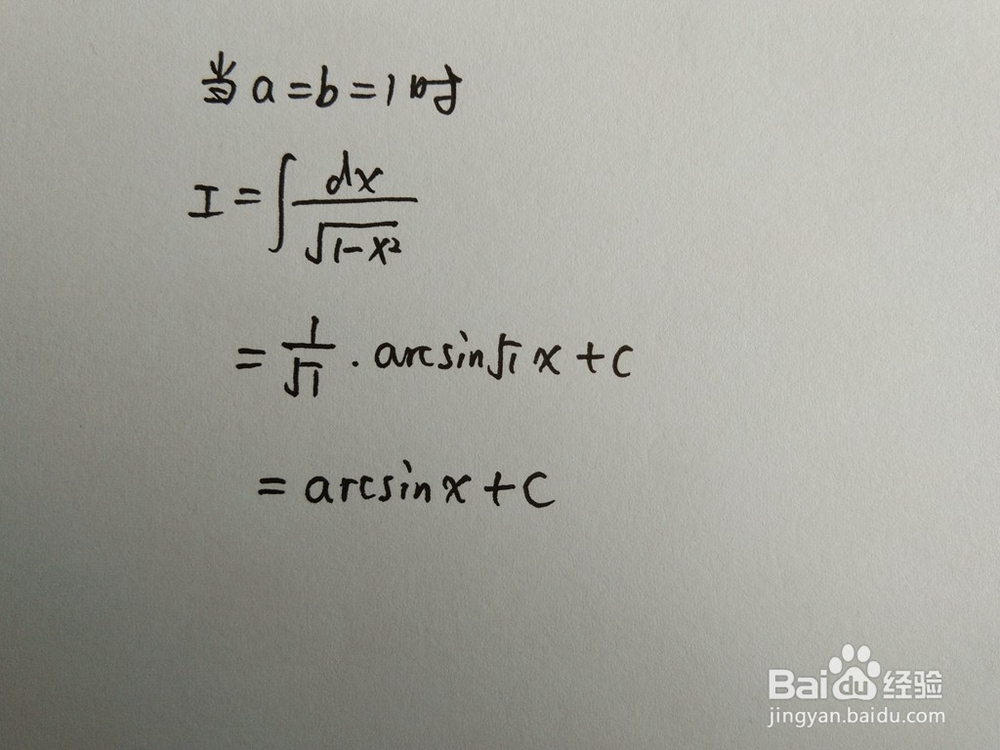 当a=b=1时
I=∫dx/√(1-x²)
=1/√1·arcsin√1x+C
=arcsinx+C
Baidu经验
jingyan.baidu.com